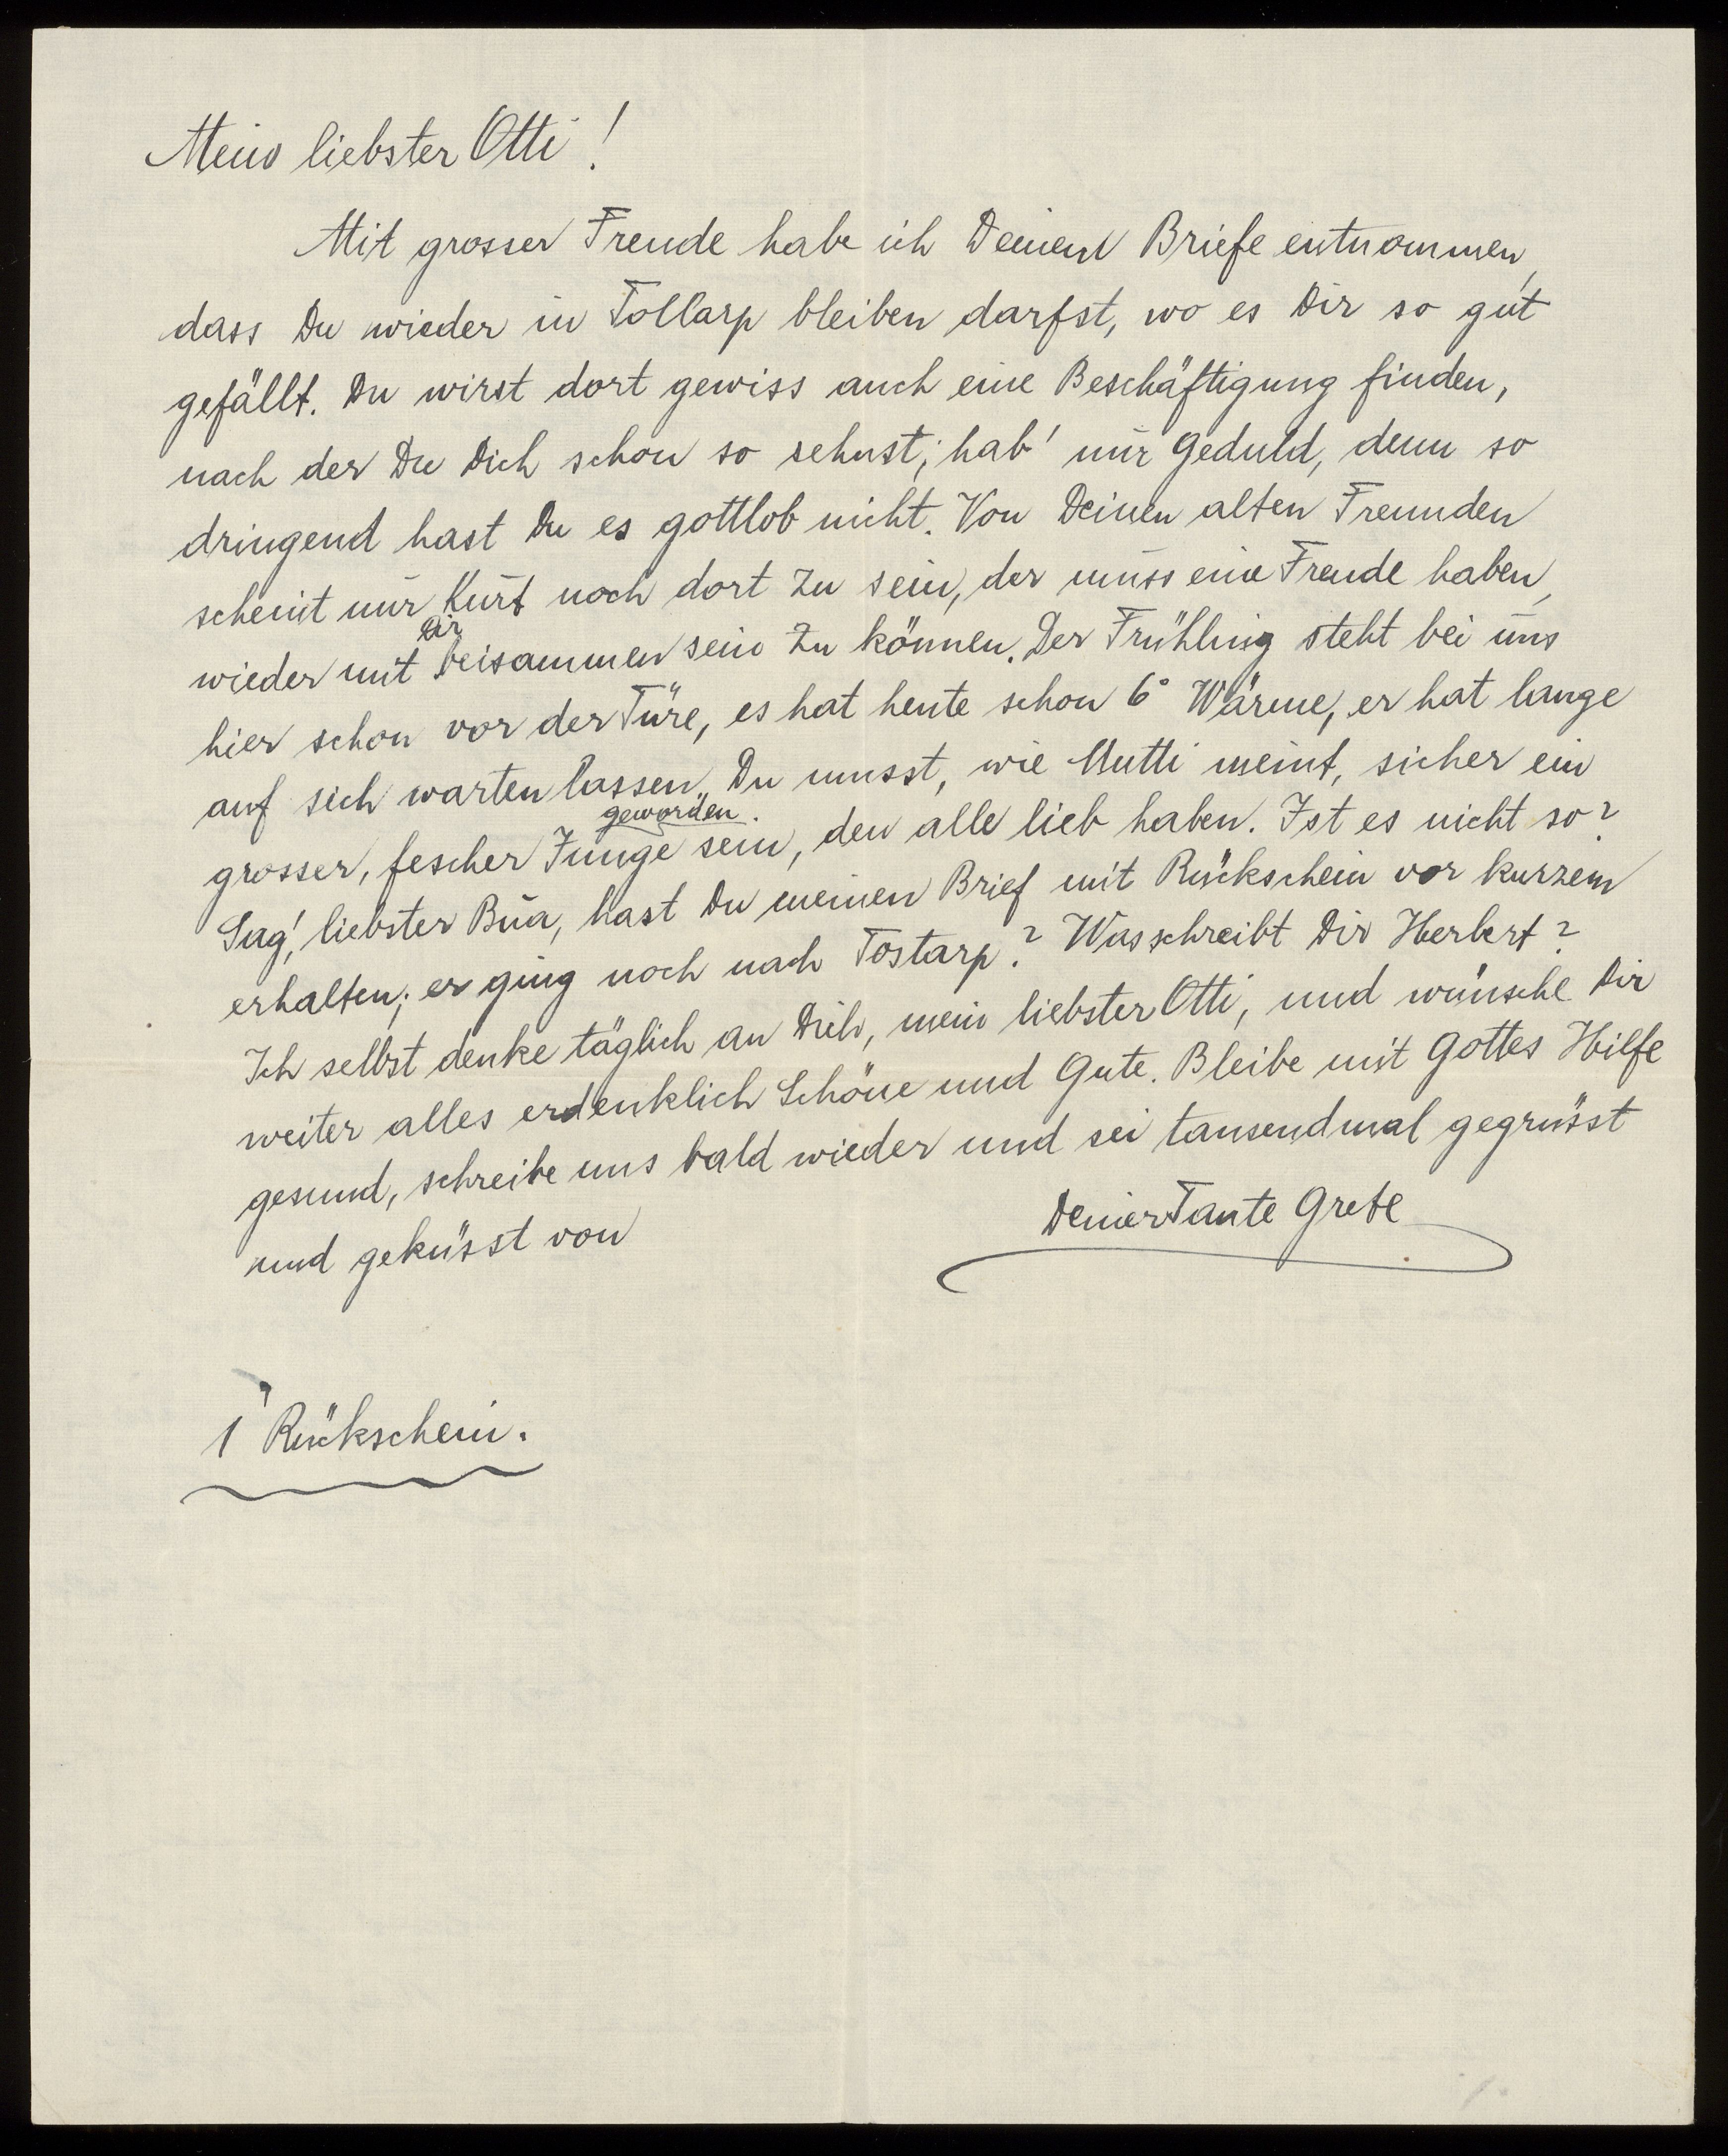 Mein liebster Otti!
Mit grosser Freude habe ich Deinem Briefe entnommen,
dass Du wieder in Tollarp bleiben darfst, wo es Dir so gut
gefällt. Du wirst dort gewiss auch eine Beschäftigung finden,
nach der Du Dich schon so sehnst; hab' nur Geduld, denn so
dringend hast Du es gottlob nicht. Von Deinen alten Freunden
scheint nur Kurt noch dort zu sein, der muss eine Freude haben,
wieder mit Dir beisammen sein zu können. Der Frühling steht bei uns
hier schon vor der Türe, es hat heute schon 6° Wärme, er hat lange
auf sich warten lassen. Du musst, wie Mutti meint, sicher ein
grosser, fescher Junge geworden sein, den alle lieb haben. Ist es nicht so?
Sag', liebster Bua, hast Du meinen Brief mit Rückschein vor kurzem
erhalten; er ging noch nach Tostarp? Was schreibt Dir Herbert?
Ich selbst denke täglich an Dich, mein liebster Otti, und wünsche Dir
weiter alles erdenklich Schöne und Gute. Bleibe mit Gottes Hilfe
gesund, schreibe uns bald wieder und sei tausendmal gegrüsst
und geküsst von
Deiner Tante Grete
1 Rückschein.